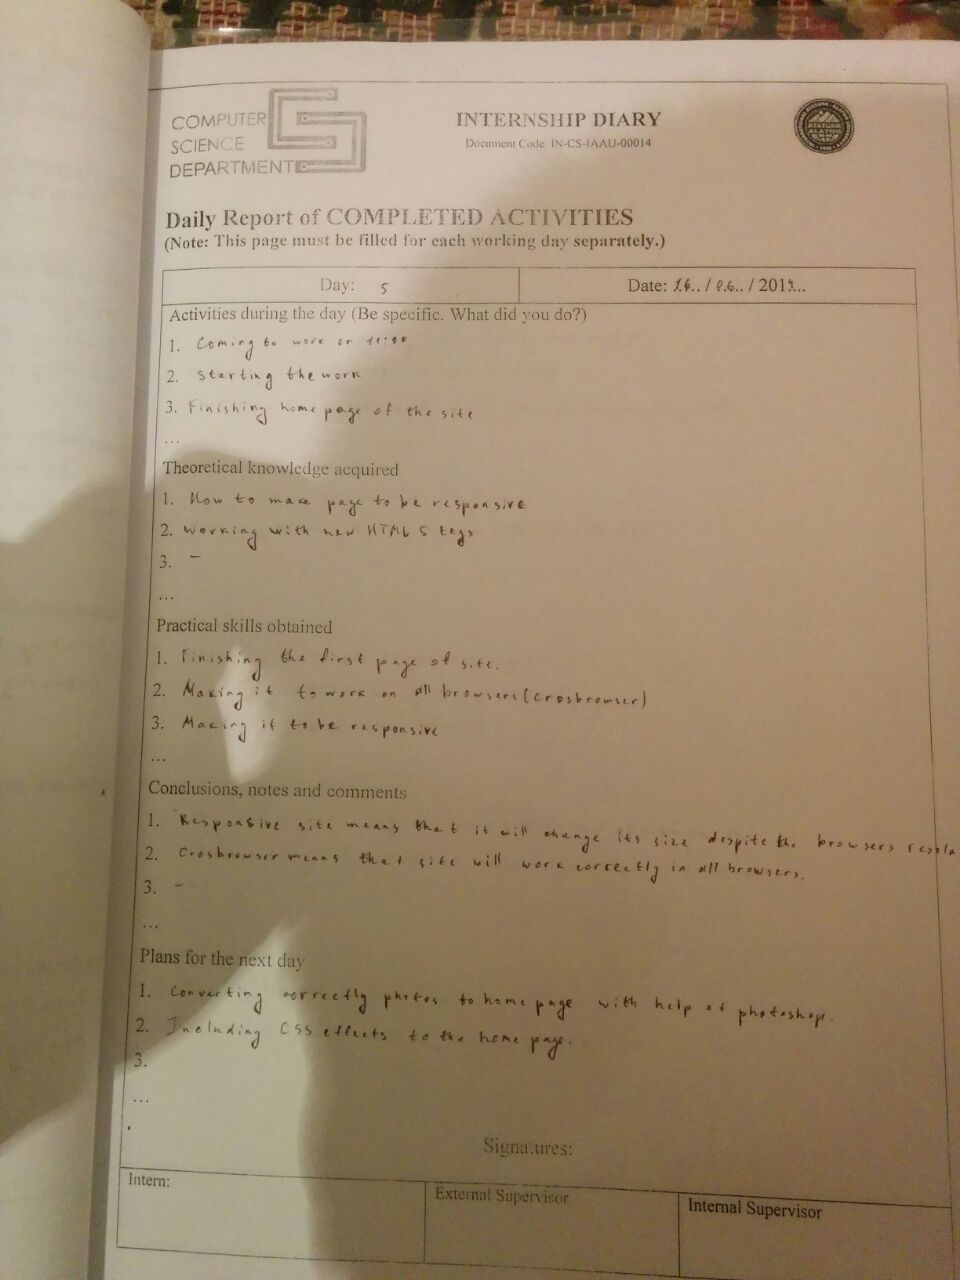 COMPUTER
SCIENCE
DEPARTMENT
INTERNSHIP DIARY
Document Code: IN-CS-IAAU-00014
ATATURK
ALATOO
Daily Report of COMPLETED ACTIVITIES
(Note: This page must be filled for each working day separately.)
Day: 5
Date: 16../06../201...
Activities during the day (Be specific. What did you do?)
1. Coming to work on 11:00
2. Starting the work
3. Finishing home page of the site
...
Theoretical knowledge acquired
1. How to make page to be responsive
2. Working with new HTML 5 tegs
3. –
...
Practical skills obtained
1. Finishing the first page of site.
2. Making it to work on all browsers (crosbrowser)
3. Making it to be responsive
...
Conclusions, notes and comments
1. Responsive site means that it will change its size despite the browsers resola
2. Crosbrowser means that site will work correctly in all browsers.
3. –
...
Plans for the next day
1. Converting correctly photos to home page with help of photoshop.
2. Including CSS effects to the home page.
3.
...
Signatures:
Intern:
External Supervisor
Internal Supervisor